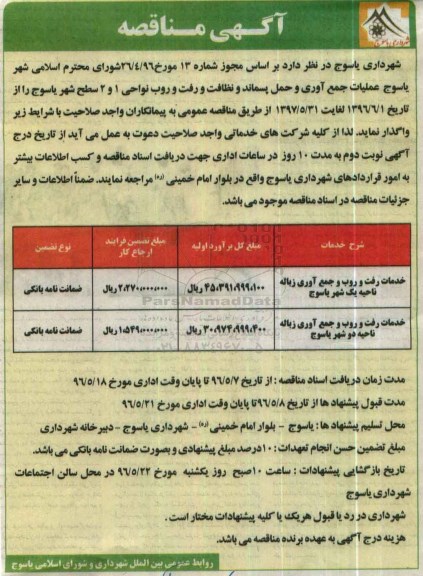 آگهی مناقصه
شهرداری یاسوج
شهرداری یاسوج در نظر دارد بر اساس مجوز شماره ۱۳ مورخ ۲۶/۴/۹۶شورای محترم اسلامی شهر
یاسوج عملیات جمع آوری و حمل پسماند و نظافت و رفت و روب نواحی ۱ و ۲ سطح شهر یاسوج را از
تاریخ ۱۳۹۶/۶/۱ لغایت ۱۳۹۷/۵/۳۱ از طریق مناقصه عمومی به پیمانکاران واجد صلاحیت با شرایط زیر
واگذار نماید. لذا از کلیه شرکت های خدماتی واجد صلاحیت دعوت به عمل می آید از تاریخ درج
آگهی نوبت دوم به مدت ۱۰ روز در ساعات اداری جهت دریافت اسناد مناقصه و کسب اطلاعات بیشتر
به امور قراردادهای شهرداری یاسوج واقع در بلوار امام خمینی (ره) مراجعه نمایند. ضمناً اطلاعات و سایر
جزئیات مناقصه در اسناد مناقصه موجود می باشد.
شرح خدمات مبلغ کل برآورد اولیه مبلغ تضمین فرایند ارجاع کار نوع تضمین
خدمات رفت و روب و جمع آوری زباله ناحیه یک شهر یاسوج ۴۵،۳۹۱،۹۹۹،۱۰۰ ریال ۲،۲۷۰،۰۰۰،۰۰۰ ریال ضمانت نامه بانکی
خدمات رفت و روب و جمع آوری زباله ناحیه دو شهر یاسوج ۳۰،۹۷۴،۹۹۹،۴۰۰ ریال ۱،۵۴۹،۰۰۰،۰۰۰ ریال ضمانت نامه بانکی
ParsNamadData
مدت زمان دریافت اسناد مناقصه : از تاریخ ۹۶/۵/۷ تا پایان وقت اداری مورخ ۹۶/۵/۱۸
مدت قبول پیشنهاد ها از تاریخ ۹۶/۵/۸تا پایان وقت اداری مورخ ۹۶/۵/۲۱
محل تسلیم پیشنهاد ها : یاسوج - بلوار امام خمینی (ره) - شهرداری یاسوج - دبیرخانه شهرداری
مبلغ تضمین حسن انجام تعهدات : ۱۰درصد مبلغ پیشنهادی و بصورت ضمانت نامه بانکی می باشد.
تاریخ بازگشایی پیشنهادات : ساعت ۱۰صبح روز یکشنبه مورخ ۹۶/۵/۲۲ در محل سالن اجتماعات
شهرداری یاسوج
شهرداری در رد یا قبول هریک یا کلیه پیشنهادات مختار است .
هزینه درج آگهی به عهده برنده مناقصه می باشد.
روابط عمومی بین الملل شهرداری و شورای اسلامی یاسوج